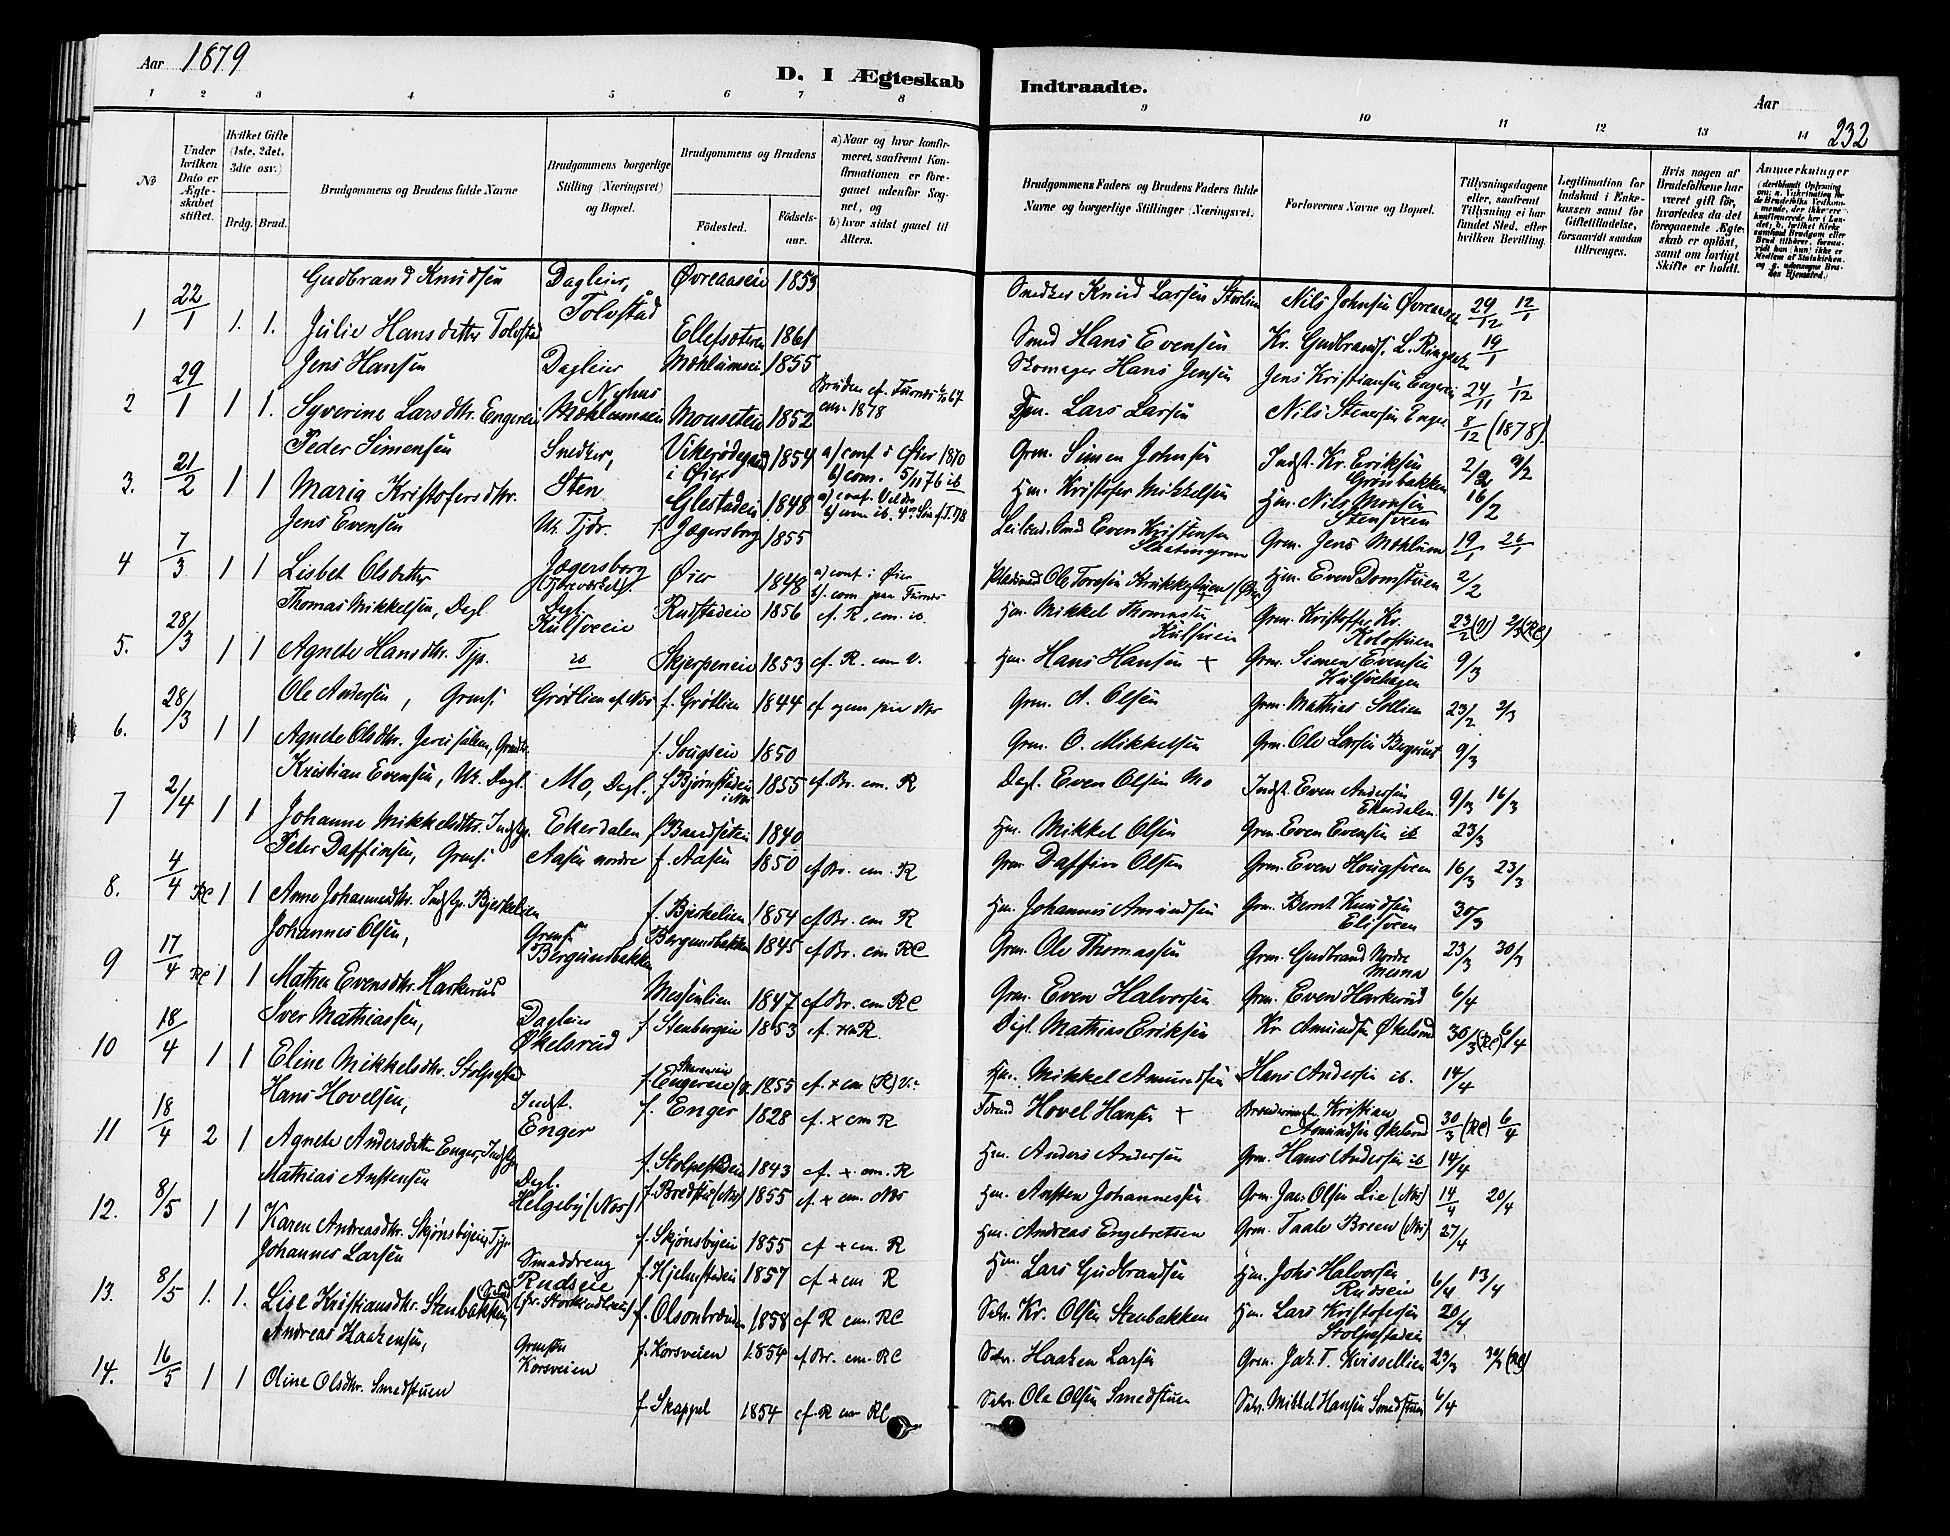 Aar 1879
D. I Ægteskab Indtraadte.
Aar
232
1 2 3 4 5 6 7 8 9 10 11 12 13 14
No
Under hvilken Dato er Ægteskabet stiftet.
Hvilket Gifte (1ste, 2det, 3die osv.)
Brdg. Brud.
Brudgommens og Brudens fulde Navne
Brudgommens borgerlige Stilling (Næringsvei) og Bopæl.
Brudgommens og Brudens
Fødested.
Fødselsaar.
a) Naar og hvor konfirmeret, saafremt Konfirmationen er foregaaet udenfor Sognet, og
b) hvor sidst gaaet til Alters.
Brudgommens Faders og Brudens Faders fulde Navne og borgerlige Stillinger (Næringsvei.
Forlovernes Navne og Bopæl.
Tillysningsdagene eller, saafremt Tillysning ei har fundet Sted, efter hvilken Bevilling.
Legitimation for Indskud i Enkekassen samt for Giftetilladelse, forsaavidt saadan tiltrænges.
Hvis nogen af Brudefolkene har været gift før, hvorledes da det foregaaende Ægteskab er opløst, samt om lovligt Skifte er holdt.
Anmerkninger
1 22/1 1. 1. Gudbrand Knudsen Dagleier, Tolvstad Øvreaaseie 1853 Snedker Knud Larsen Nils Johnsen 29/12 12/1
Julie Hansdatter Tolvstad Ellefsæteren 1861 Smed Hans Evensen Kr. Gudbrands. L. Ringsak 19/1
2 29/1 1 1. Jens Hansen Dagleier Nyhus Mohlumseie 1855 Skomager Hans Jensen Jens Kristiansen Engereie 24/11 1/12
Syverine Larsdtr. Engereie 1852 Lars Larsen Nils Stenersen Enger 8/12 (1878).
3. 21/2 1 1 Peder Simensen Snedker, Sten i Øier 1854 a) conf. i Øier 1870 b) com. 5/11 76 ib Grm. Simen Johnsen Indst. Kr. Eriksen Grønbakken 2/2 9/2
Maria Kristofersdtr. Glestadeie 1848 Hm. Kristofer Mikkelsen Hm. Nils Monsen Stensveen 16/2
4 7/3 1 1 Jens Evensen Uk. Tjdr. f. Jægersborg 1855 Even Kristensen Grm. Jens Mohlum 19/1 26/1
Lisbet Olsdatter Jægersborg Øier 1848 a) conf. i Øier b). com paa Furnes Ole Toresen Hm. Even Domstuen 2/2
5. 28/3 1 1 Thomas Mikkelsen, Dagl. Dagl. Kulsveeie Rudstadeie 1856 cf. R. com. ib. Hm. Mikkel Thomassen Kulsveeie Grm. Kristoffer Kr. Kolostuen 23/2 (V) 2/3 (RC)
Agnete Hansdtr. Tjp. ib Skjerpeneie 1853 cf. R. com V. Hm. Hans Hansen + Grm. Simen Evensen Kulsvehagen 9/3
6. 28/3 1 1 Ole Andersen, Grmsf. Grøtlien f. Grøtlien 1844 Grm. A. Olsen Grm. Mathias Sollien 23/2 2/3
Agnete Olsdtr. Jerusalem, Grmdtr. f. Sougseie 1850 Grm. O. Mikkelsen Grm. Ole Larsen Bergsust 9/3
7 2/4 1 1 Kristian Evensen, Uk. Dagl. Mo, Dagl. f. Bjørnstadeie 1855 cf. Br. cm. R Dagl. Even Olsen Mo Indst. Even Andersen Ekerdalen 9/3 16/3
Johanne Mikkelsdtr. Indstp. Ekerdalen f. Bandseteie 1840 Hm. Mikkel Olsen Grm. Even Evensen ib 23/3
8. 4/4 RC 1 1 Peter Daffinsen, Grmsf. Aasen nordre f. Aasen 1850 cf Br. cm. R Grm Daffin Olsen Grm. Even Hougsveen 16/3 23/3
Anne Johannesdtr. Indstp. Bjerkelien f. Bjerkelien 1854 cf Br. cm R Hm. Johannes Amundsen Grm. Bernt Knudsen Elisveen 30/3
9 17/4 RC 1 1 Johannes Olsen, Grmsf. Bergumbakken f. Bergumbakken 1845 cf Br. cm RC Grm. Ole Thomassen Grm. Gudbrand Nordre Mesna 23/3 30/3
Mathea Evensdtr. Harkerud Messenlien 1847 cf Br. cm RC Grm. Even Halvorsen Grm. Even Harkerud 6/4
10 18/4 1 1 Iver Mathiassen, Dagleier Økelsrud f. Stenbergeie 1853 cf. + cm R. Dgl. Mathias Eriksen Kr. Amundsen Økelsrud 30/3 (RC) 6/4
Eline Mikkelsdtr. Stolpestad f. Engereie 1855 cf. + cm (R) Hm. Mikkel Amundsen Hans Andersen ib. 14/4
11 18/4 2 1 Hans Hovelsen, Indst. Enger f. Enger 1828 cf. + cm R Hovel Hansen + Kristian Amundsen Økelsrud 30/3 (RC) 6/4
Agnete Andersdatter Enger, Indstp f. Stolpestadeie 1843 cf. + cm. R Hm. Anders Andersen Grm. Hans Andersen ib 14/4
12. 8/5 1 1 Mathias Anstensen Dagl. Helgeby (Næs) 1855 cf. + cm. Næs Hm. Ansten Johannessen Grm. Jac. Olsen Lie (Næs) 14/4 20/4
Karen Andreasdtr. Skjønsbyeie, Tjp f. Skjønsbyeie 1855 cf + cm. R Hm. Andreas Engebretsen Grm. Taale Breen (Næs) 27/4
13. 8/5 1. 1. Johannes Larsen Smeddreng Rudseie f. Hjelmstadeie 1857 cf + cm R Hm. Lars Gudbrandsen Hm. Johs Halvorsen Rudseie 6/4 13/4
Lise Kristiansdtr. Stenbakken 1858 cf R cm. RC Selv. Kr. Olsen Stenbakken Hm. Lars Kristofersen Stolpestadeie 20/4
14. 16/5 1 1 Andreas Haakensen, Grmsøn Korsveien f. Korsveien 1854 cf. Br. cm. RC Selv. Haaken Larsen Grm. Jak. T. Kvissellien 23/3 30/3 (RC)
Oline Olsdtr. Smedstuen f. Skappel 1854 cf. R cm RC Selv. Ole Olsen Smedstuen Selv. Mikkel Hansen Smedstuen 6/4